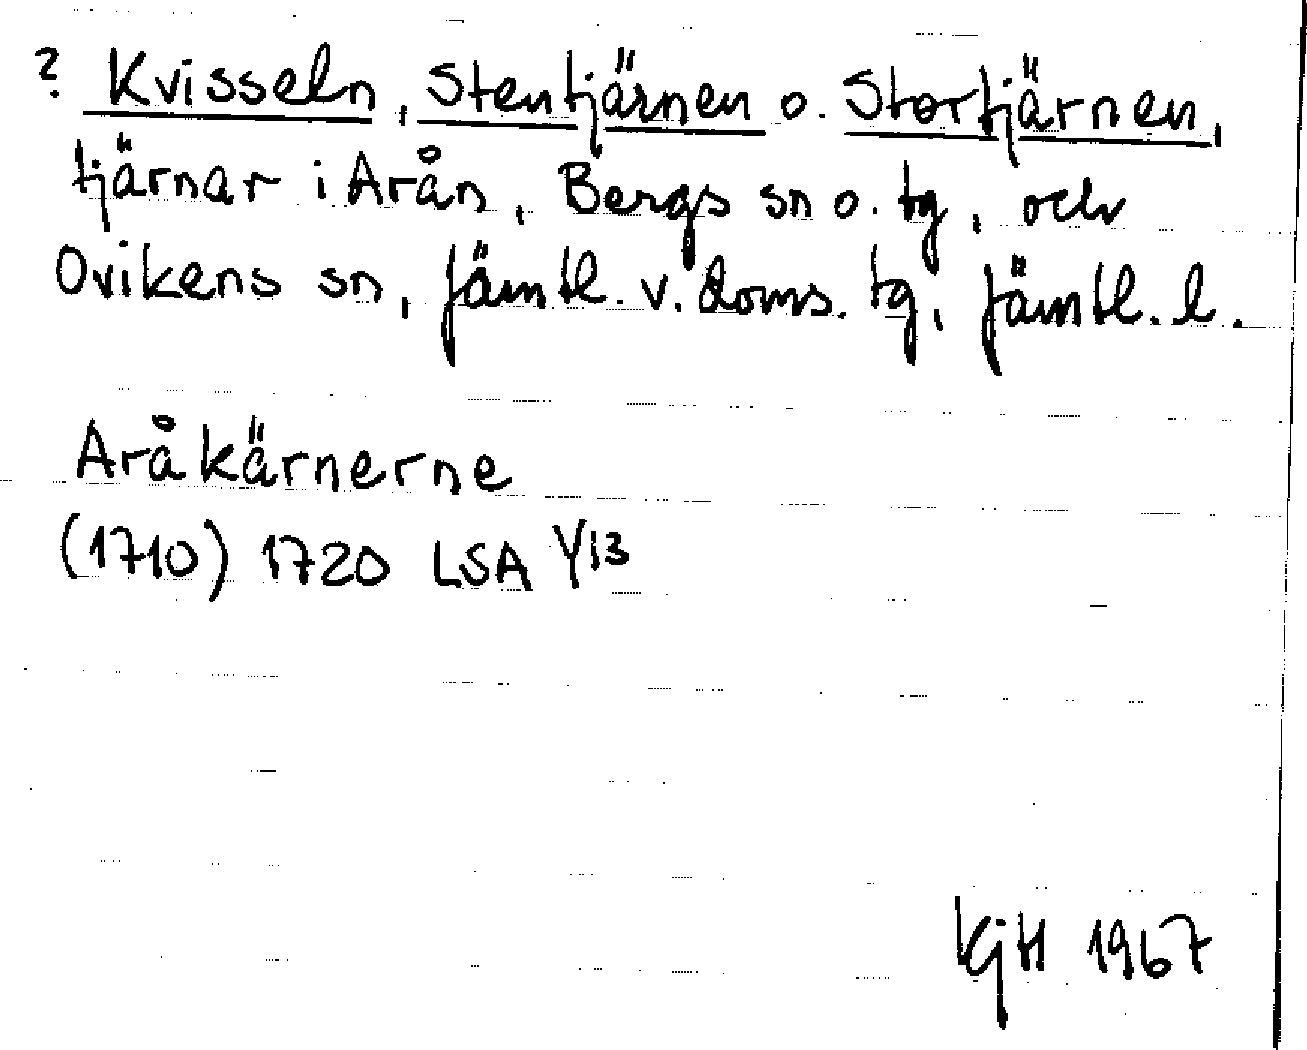 ? Kvisseln, Stentjärnen o. Stortjärnen,
tjärnar i Arån, Bergs sn o. tg, och
Ovikens sn, Jämtl. v. doms. tg, Jämtl. l.
Aråkärnerne
(1710) 1720 LSA Y13
KjH 1967